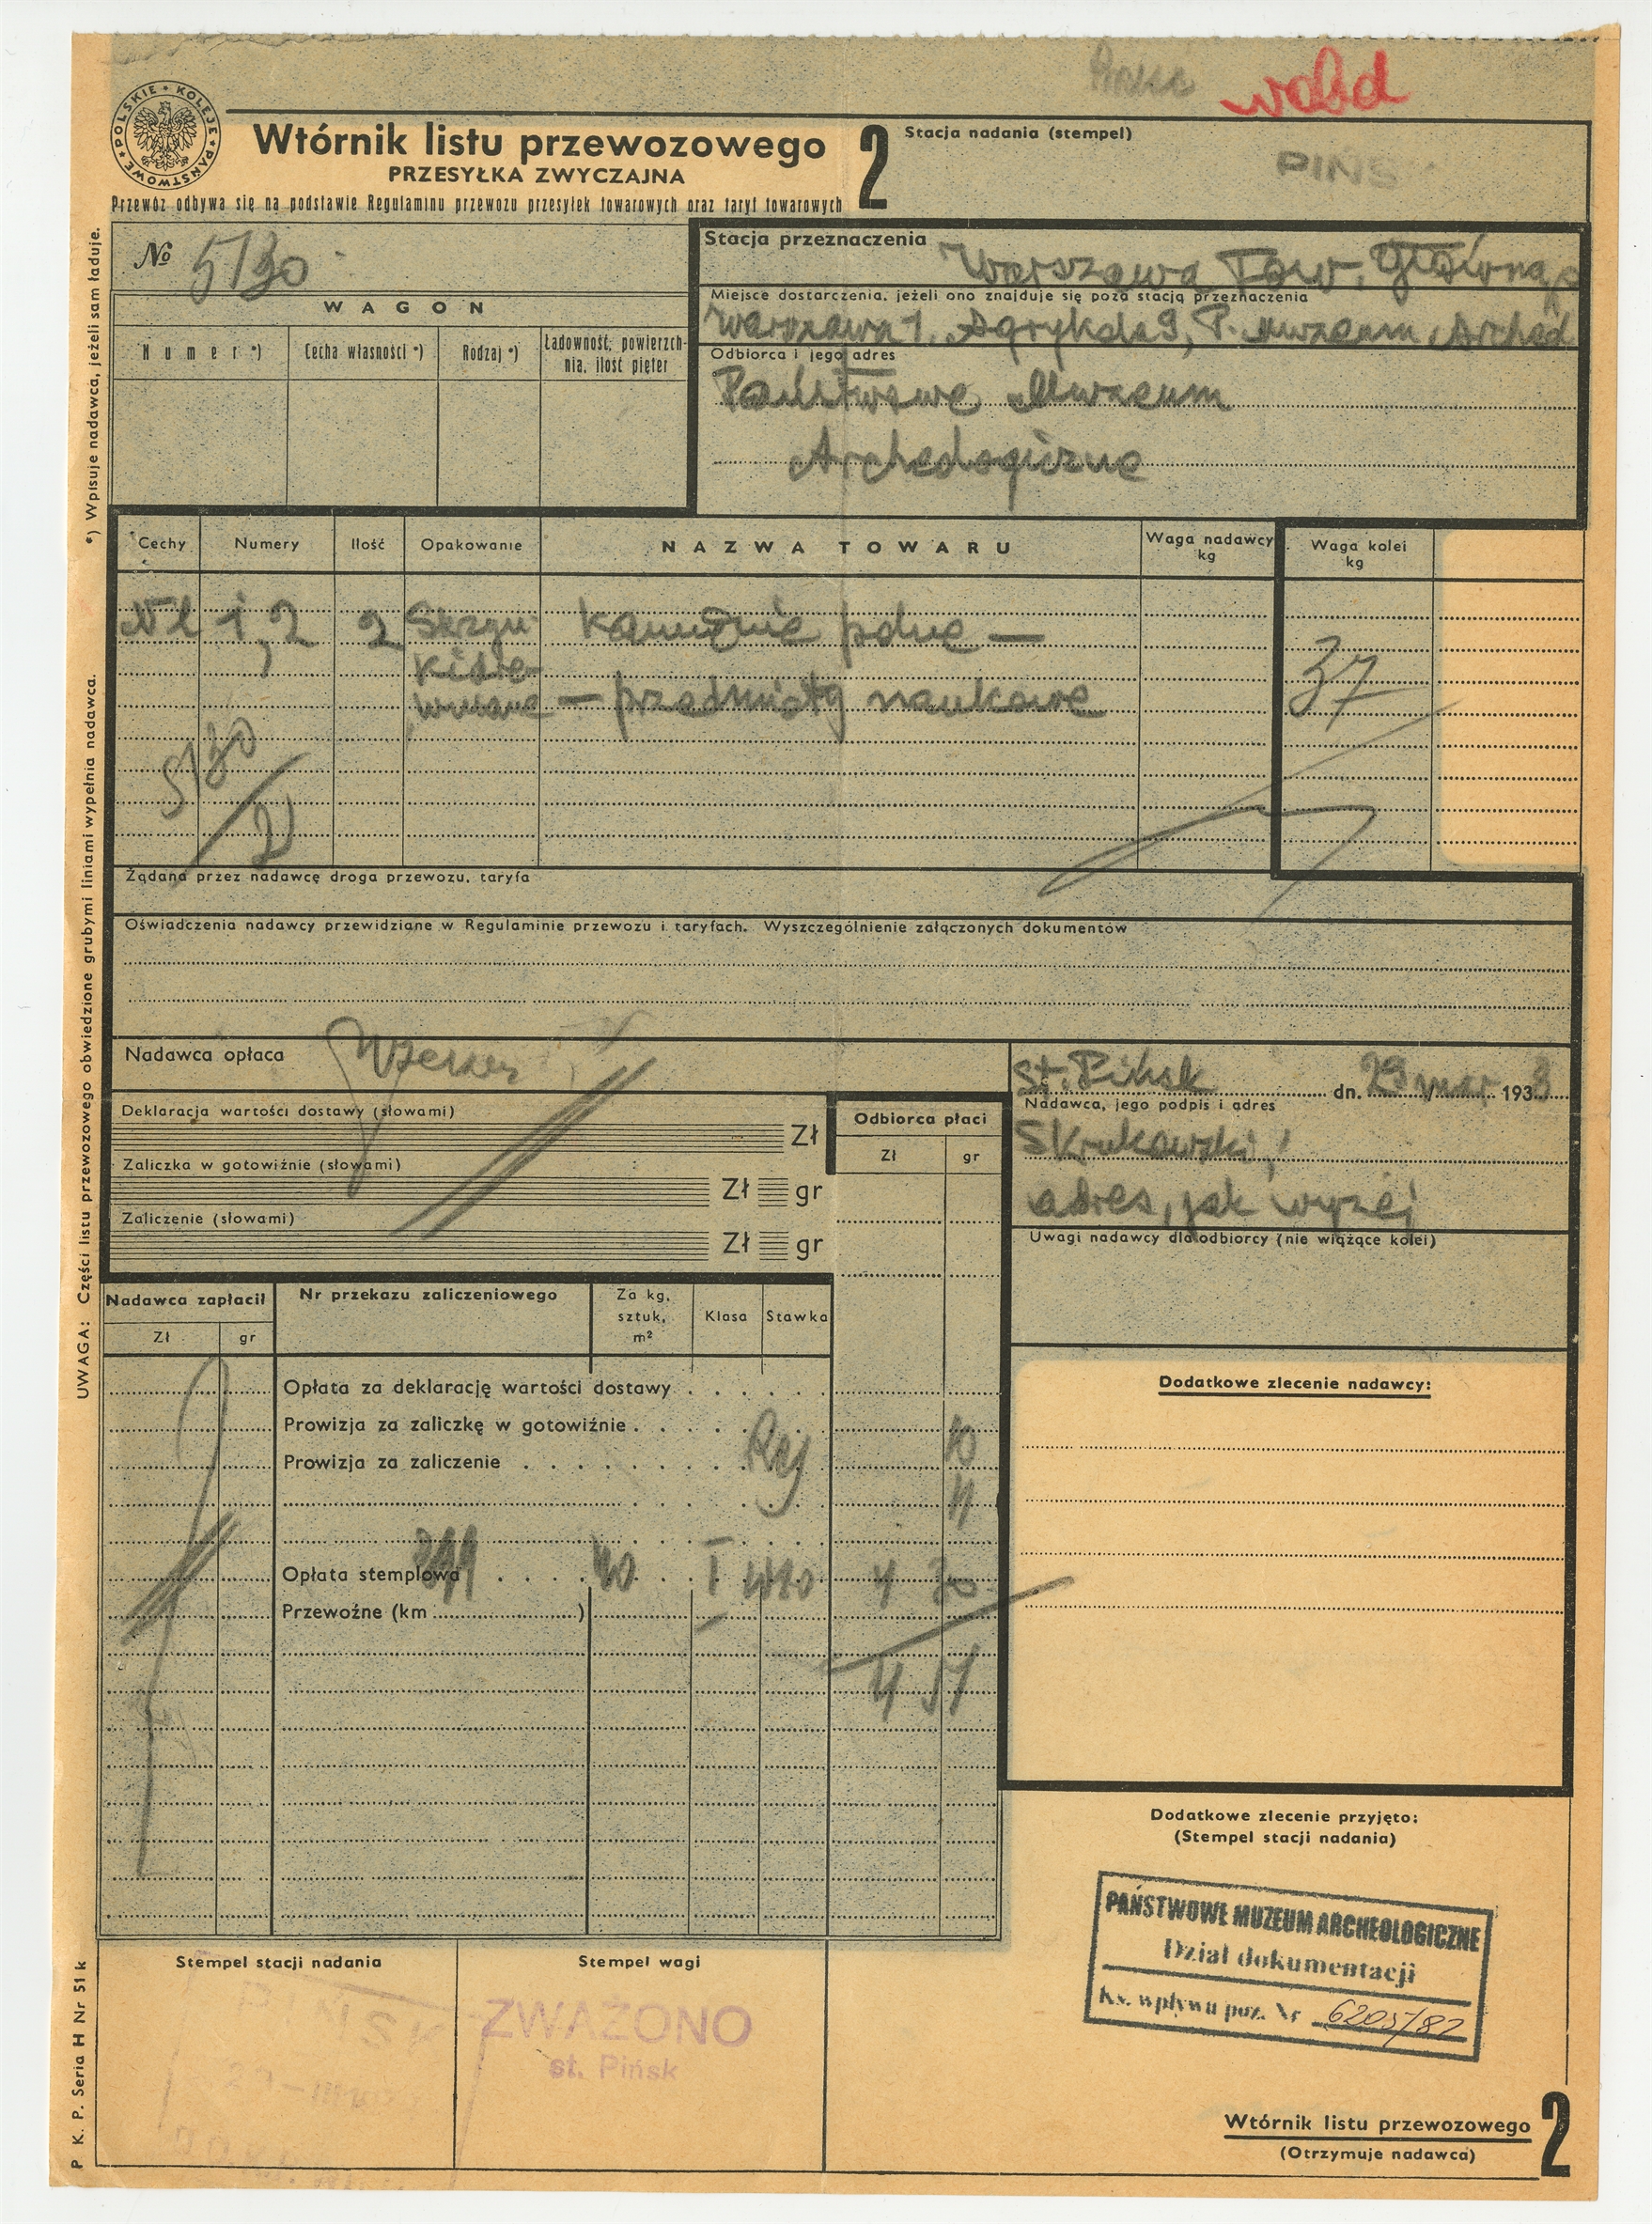 wold
POLSKIE KOLEJE PAŃSTWOWE
Wtórnik listu przewozowego
PRZESYŁKA ZWYCZAJNA
Przewóz odbywa się na podstawie Regulaminu przewozu przesyłek towarowych oraz taryf towarowych
2
Stacja nadania (stempel)
PIŃS
№ 5130
WAGON
Numer *)
Cecha własności *)
Rodzaj *)
Ładowność, powierzch-
nia, ilość pięter
Stacja przeznaczenia
Warszawa Tow. Główna
Miejsce dostarczenia, jeżeli ono znajduje się poza stacją przeznaczenia
Warszawa 1, Agrykola 9, P. Muzeum Archeol
Odbiorca i jego adres
Państwowe Muzeum
Archeologiczne
Cechy
Numery
Ilość
Opakowanie
NAZWA TOWARU
Waga nadawcy
kg
Waga kolei
kg
1, 2
2
Skrzyn
kamienie polne —
— przedmioty naukowe
37
5130
2
Żądana przez nadawcę droga przewozu, taryfa
Oświadczenia nadawcy przewidziane w Regulaminie przewozu i taryfach. Wyszczególnienie załączonych dokumentów
Nadawca opłaca
Deklaracja wartości dostawy (słowami)
Zł
Zaliczka w gotowiźnie (słowami)
Zł gr
Zaliczenie (słowami)
Zł gr
Odbiorca płaci
Zł gr
st. Pińsk dn. 29 mar 1938
Nadawca, jego podpis i adres
Skrukowski,
adres, jak wyżej
Uwagi nadawcy dla odbiorcy (nie wiążące kolei)
Nadawca zapłacił
Zł gr
Nr przekazu zaliczeniowego
Za kg,
sztuk,
m²
Klasa
Stawka
Opłata za deklarację wartości dostawy
Prowizja za zaliczkę w gotowiźnie
10
Prowizja za zaliczenie
11
Opłata stemplowa
40 I 4 30
Przewoźne (km )
4 51
Dodatkowe zlecenie nadawcy:
Dodatkowe zlecenie przyjęto:
(Stempel stacji nadania)
PAŃSTWOWE MUZEUM ARCHEOLOGICZNE
Dział dokumentacji
Ks. wpływu poz. Nr 6205/82
Stempel stacji nadania
Stempel wagi
ZWAŻONO
st. Pińsk
Wtórnik listu przewozowego
(Otrzymuje nadawca)
2
*) Wpisuje nadawca, jeżeli sam ładuje.
UWAGA: Części listu przewozowego obwiedzione grubymi liniami wypełnia nadawca.
P. K. P. Seria H Nr 51 k